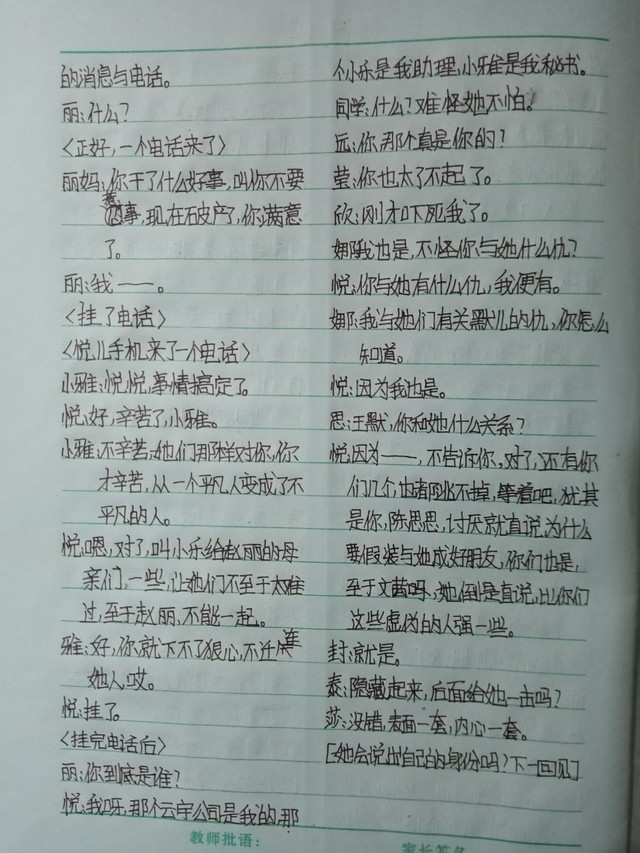 的消息与电话。
丽:什么?
〈正好,一个电话来了〉
丽妈:你干了什么好事,叫你不要
惹事,现在破产了,你满意
了。
丽:我——。
〈挂了电话〉
〈悦儿手机来了一个电话〉
小雅:悦悦,事情搞定了。
悦:好,辛苦了,小雅。
小雅:不辛苦,她们那样对你,你
才辛苦,从一个平凡人变成了不
平凡的人。
悦:嗯,对了,叫小乐给赵丽的母
亲们,一些,让她们不至于太难
过,至于赵丽,不能一起。
雅:好,你就下不了狠心,不迁连
她人,哎。
悦:挂了。
〈挂完电话后〉
丽:你到底是谁?
悦:我呀,那个云宇公司是我的,那
个小乐是我助理,小雅是我秘书。
同学:什么?难怪她不怕。
远:你,那个真是你的?
莹:你也太了不起了。
欣:刚才吓死我了。
娜:我也是,不怪你与她什么仇?
悦:你与她有什么仇,我便有。
娜:我与她们有关默儿的仇,你怎么
知道。
悦:因为我也是。
思:王默,你和她什么关系?
悦:因为——,不告诉你,对了,还有你
们几个,也都逃不掉,等着吧,犹其
是你,陈思思,讨厌就直说,为什么
要假装与她成好朋友,你们也是,
至于文茜吗,她倒是直说,比你们
这些虚伪的人强一些。
封:就是。
泰:隐藏起来,后面给她一击吗?
莎:没错,表面一套,内心一套。
[她会说出自己的身份吗?下一回见]
教师批语:
家长签名